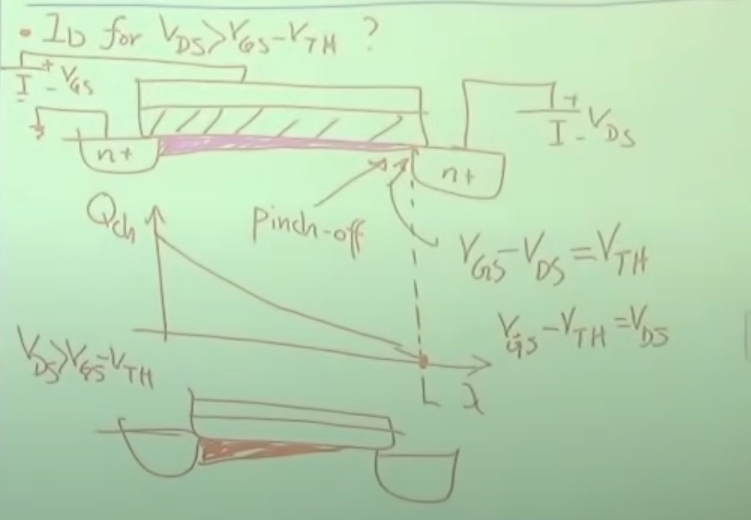 • I_D for V_DS > V_GS - V_TH ?
+ V_GS -
+ V_DS -
n+
n+
Pinch-off
Q_ch
V_GS - V_DS = V_TH
V_GS - V_TH = V_DS
V_DS > V_GS - V_TH
L x